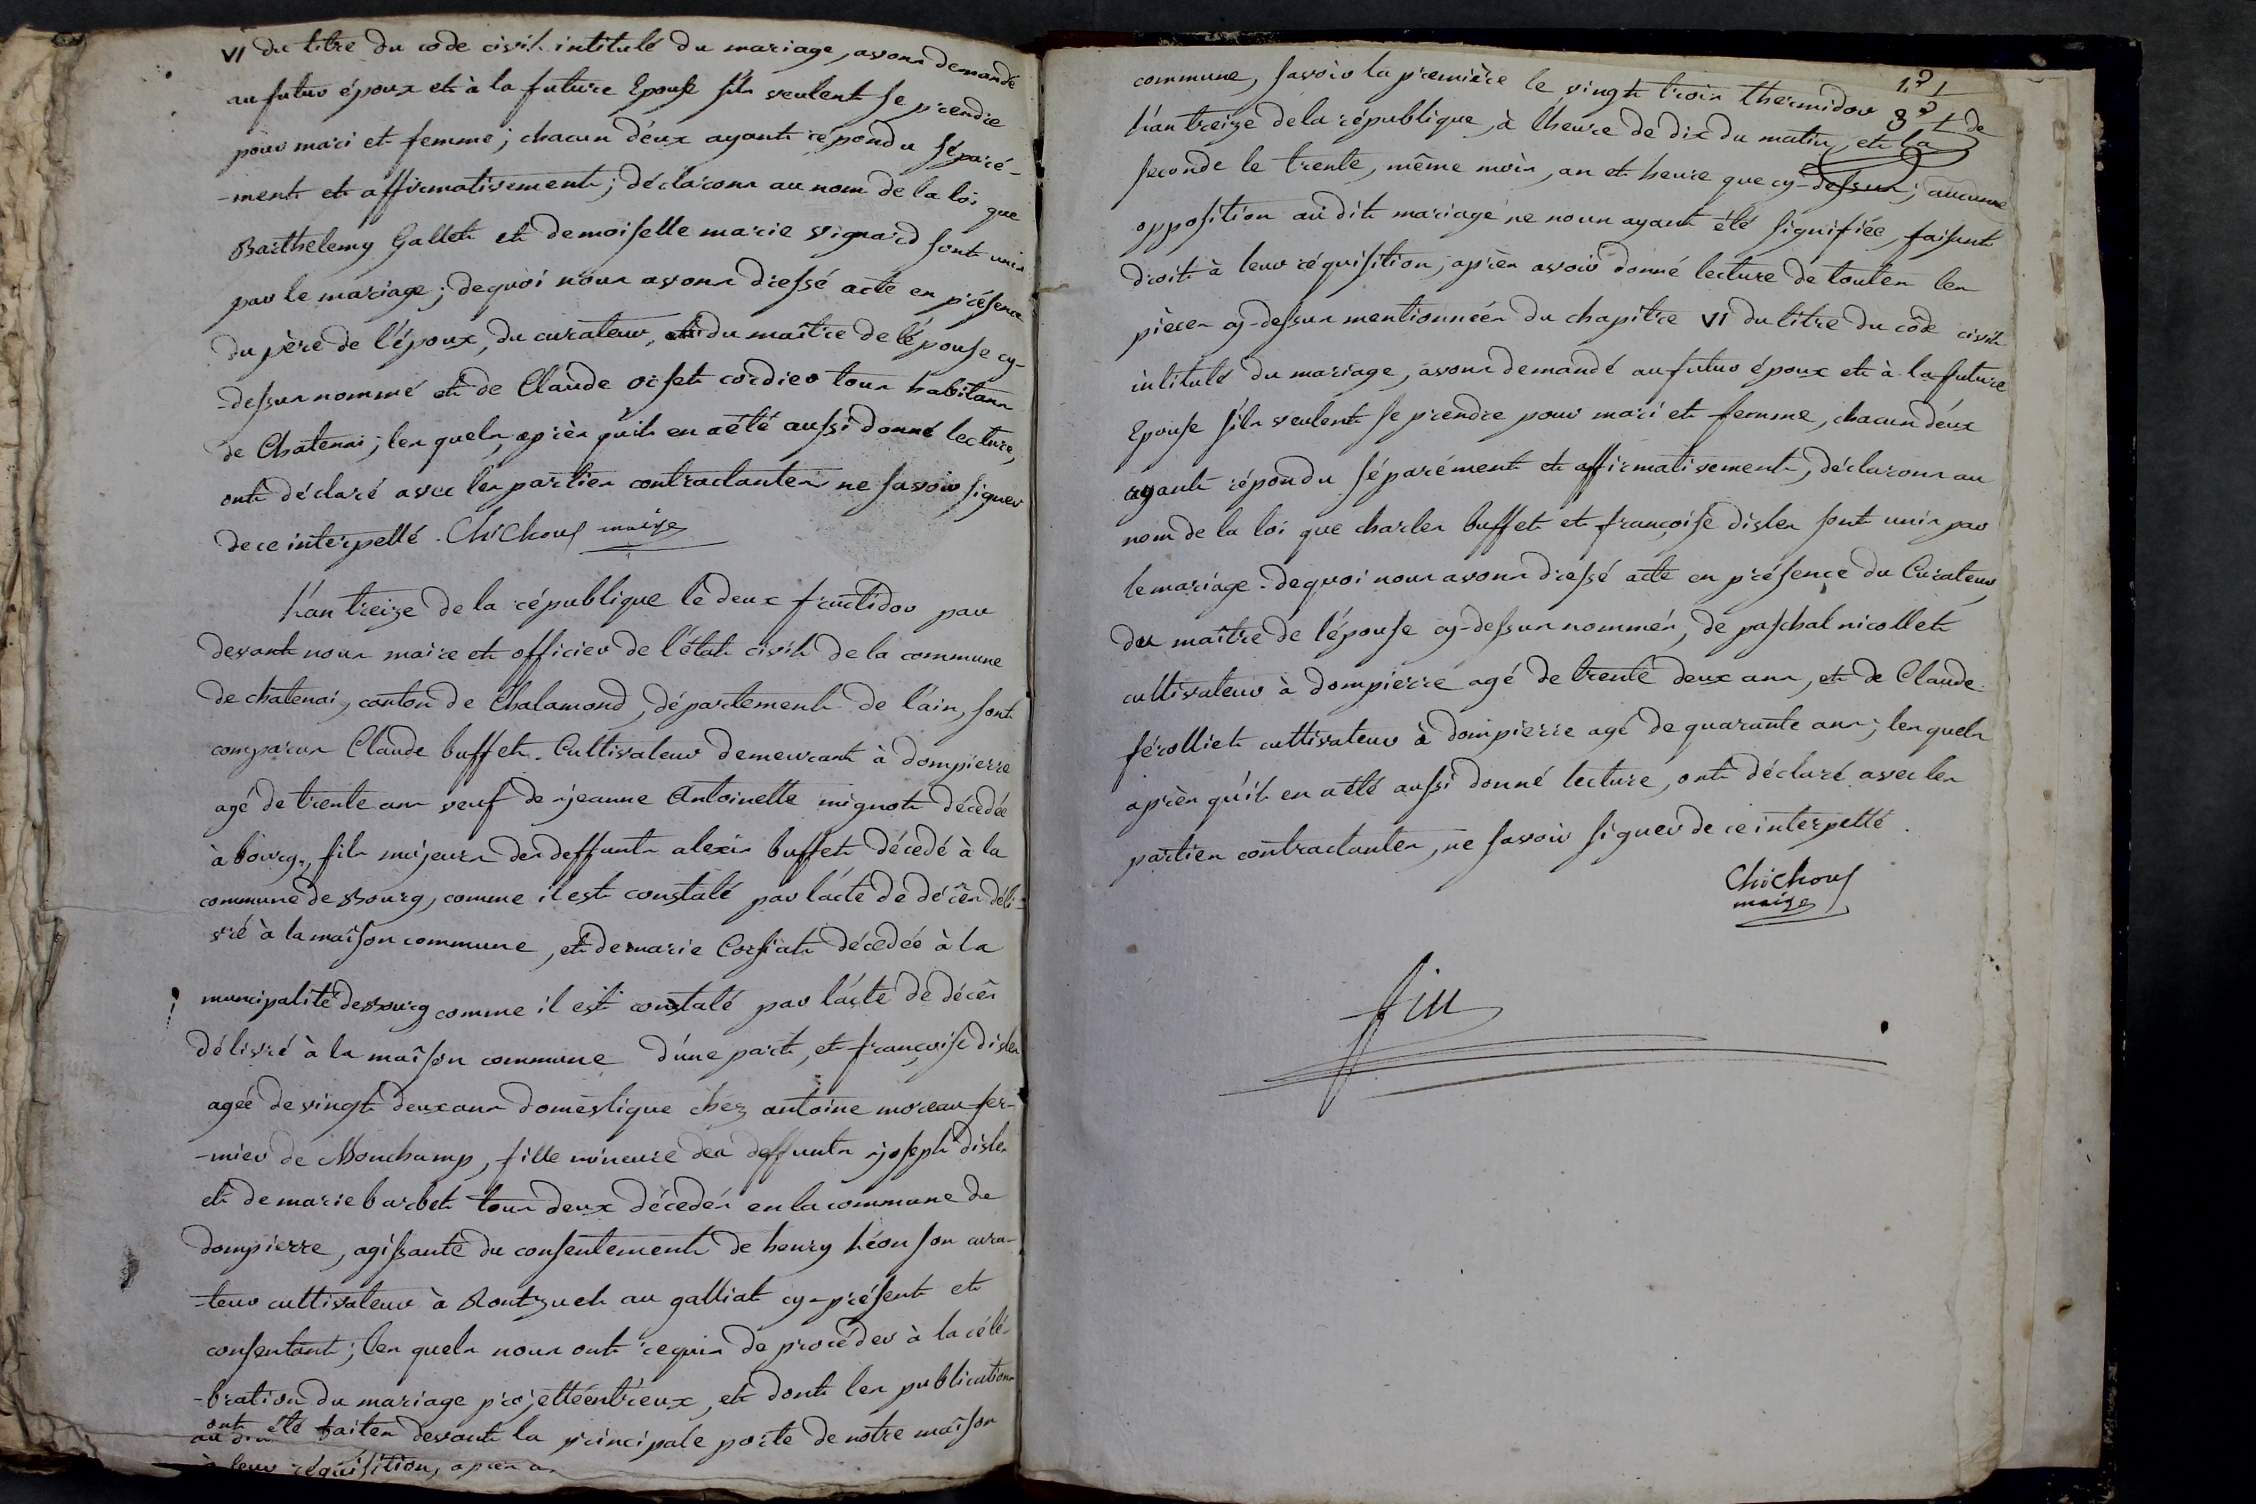 VI du titre du code civil intitulé du mariage, avons demandé
au futur époux et à la future Epouse s'ils veulent se prendre
pour mari et femme; chacun d'eux ayant répondu séparé-
-ment et affirmativement; déclarons au nom de la loi que
Barthelemy Gallet et demoiselle marie vignard sont unis
par le mariage; dequoi nous avons dressé acte en présence
du père de l'époux, du curateur, et du maître de l'épouse cy-
-dessus nommé et de Claude orset cordier tous habitans
de Chatenai; les quels après qu'il en a été aussi donné lecture,
ont déclaré avec les parties contractantes ne savoir signer
de ce interpellé. Chichoux maire
L'an treize de la république le deux fructidor par
devant nous maire et officier de l'état civil de la commune
de chatenai, canton de Chalamond, département de l'ain, sont
comparus Claude buffet. Cultivateur demeurant à dompierre
agé de trente ans veuf de jeanne Antoinette mignot décedée
à bourg, fils majeurs des deffunts alexis buffet décedé à la
commune de Bourg, comme il est constaté par l'acte de décès déli-
vré à la maison commune, et de marie Corsiat décedée à la
muncipalité de Bourg comme il est constaté par l'acte de décès
délivré à la maison commune d'une part, et françoise disles
agée de vingt deux ans domestique chez antoine moreau fer-
-mier de Monchamp, fille mineure des deffunts joseph disles
et de marie barbet tous deux décedés en la commune de
dompierre, agissante du consentement de henry Léon son cura-
-teur cultivateur à Rontzuel au galliat cy-présent et
consentant; les quels nous ont requis de procéder à la célé-
-bration du mariage projetté entr'eux, et dont les publications
ont été faites devant la principale porte de notre maison
à leur réquisition, après a
commune, savoir la première le vingt trois thermidor de
l'an treize de la république, à l'heure de dix du matin, et la
seconde le trente, même mois, an et heure que cy-dessus; aucunne
opposition au dit mariage ne nous ayant été signifiée, faisant
droit à leur réquisition, après avoir donné lecture de toutes les
pièces cy-dessus mentionnées du chapitre VI du titre du code civil
intitulé du mariage, avons demandé au futur époux et à la future
Epouse s'ils veulent se prendre pour mari et femme, chacun d'eux
ayant répondu séparément et affirmativement, déclarons au
nom de la loi que charles buffet et françoise disles sont unis par
le mariage. dequoi nous avons dressé acte en présence du Curateur,
du maître de l'épouse cy-dessus nommés, de paschal nicollet
cultivateur à dompierre agé de trente deux ans, et de Claude
férolliet cultivateur à dompierre agé de quarante ans; les quels
après qu'il en a été aussi donné lecture, ont déclaré avec les
parties contractantes, ne savoir signer de ce interpellé.
Chichoux
maire
fin